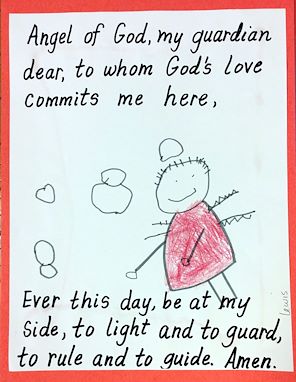 Angel of God, my guardian
dear, to whom God's love
commits me here,
Ever this day, be at my
side, to light and to guard,
to rule and to guide. Amen.
Lewis